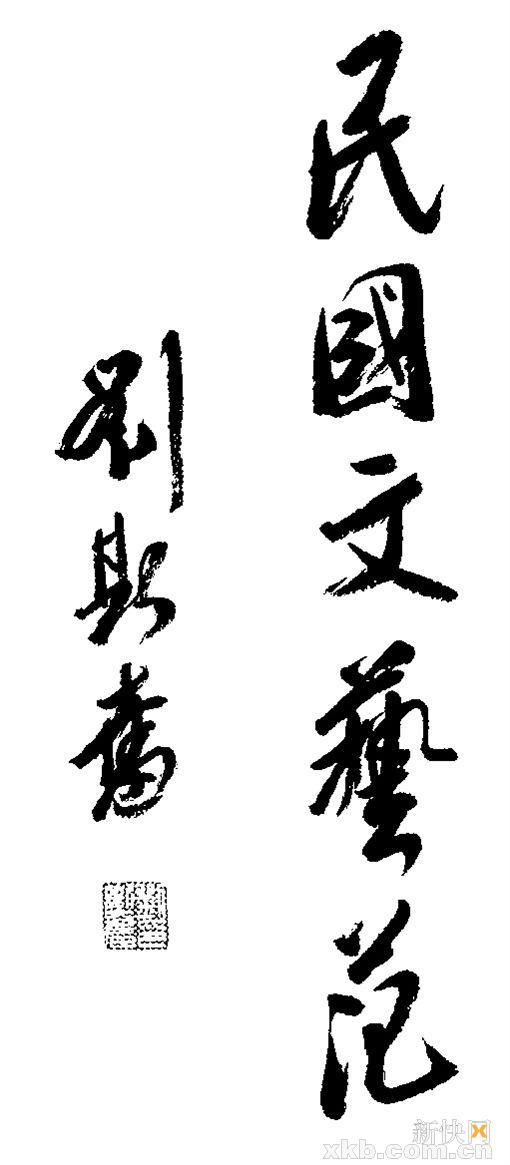 民國文藝范
劉斯奮
新快网
xkb.com.cn